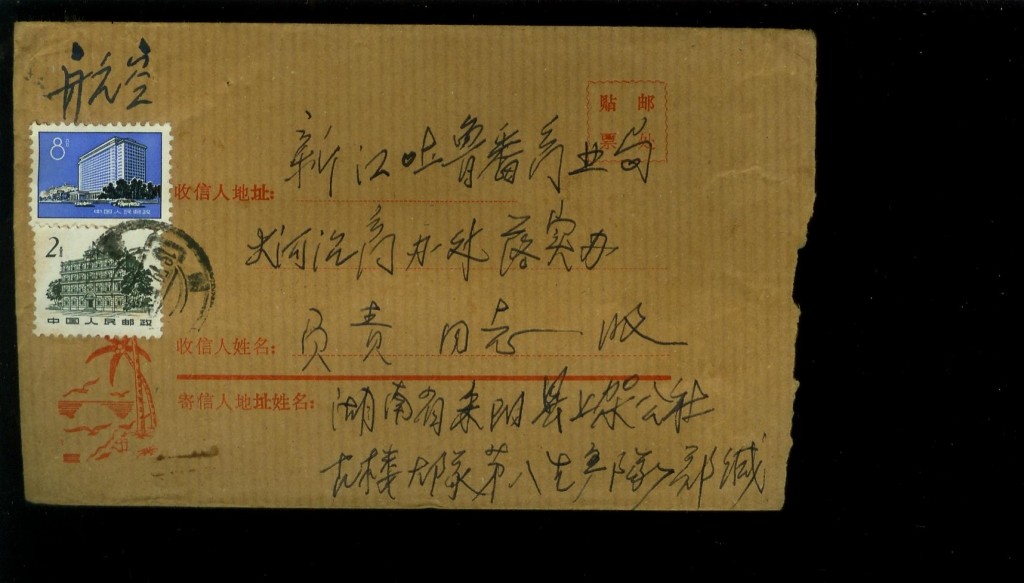 航空
贴 邮
票 处
8分
中国人民邮政
新江吐鲁番商业局
收信人地址:
大河沿商办处落实办
2分
中国人民邮政
负责同志 收
收信人姓名:
寄信人地址姓名:
湖南省耒阳县上架公社
古楼大队第八生产队 郑缄